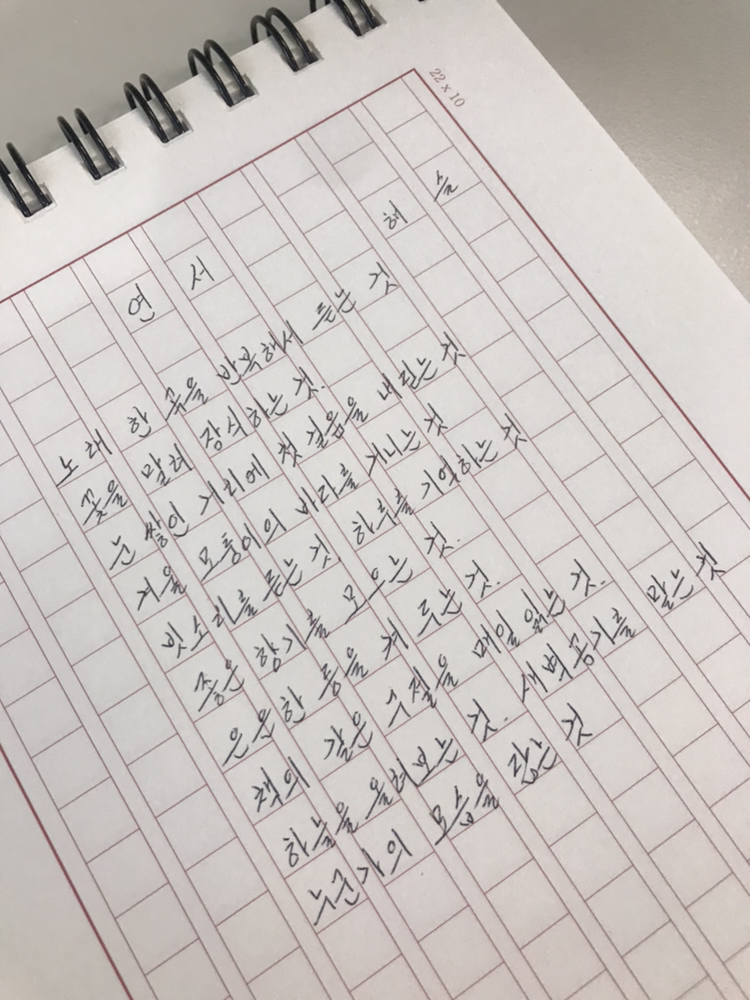 22 x 10
연서
해솔
노래 한 곡을 반복해서 듣는 것
꽃을 말려 장식하는 것.
눈 쌓인 거리에 첫 걸음을 내딛는 것
겨울 모퉁이의 바다를 거니는 것
빗소리를 듣는 것 하루를 기억하는 것
좋은 향기를 모으는 것.
은은한 등을 켜 두는 것.
책의 같은 구절을 매일 읽는 것.
하늘을 올려보는 것. 새벽공기를 맡는 것
누군가의 모습을 담는 것